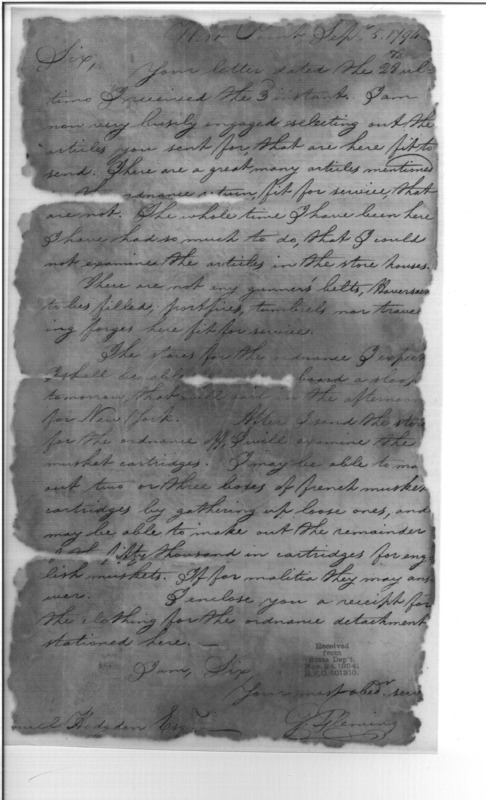 West Point Sept. 5. 1794
Sir,
Your letter dated the 28th ul-
timo I received the 3 instant. I am
now very busily engaged selecting out the
articles you sent for, that are here fit to
send. There are a great many articles mentioned
ordnance return, fit for service, that
are not. The whole time I have been here
I have had so much to do, that I could
not examine the articles in the store houses.
There are not any gunners belts, Haversac
tubes filled, portfires, tumbrels nor travel
ing forges here fit for service.
The stores for the ordnance I expect
I shall be able board a sloop
tomorrow, that will sail in the afternoon
for New York. After I send the stor
for the ordnance off, I will examine the
musket cartridges. I may be able to ma
out two or three boxes of french musket
cartridges by gathering up loose ones, and
may be able to make out the remainder
fifty thousand in cartridges for eng
lish muskets. If for malitia they may ans
wer. I enclose you a receipt for
the clothing for the ordnance detachment
stationed here. —
I am, Sir,
Your most obedt. serv
Received
from
State Dep't.
R.P.O. 401310.
muel Hodgdon Esqr.
G. Fleming